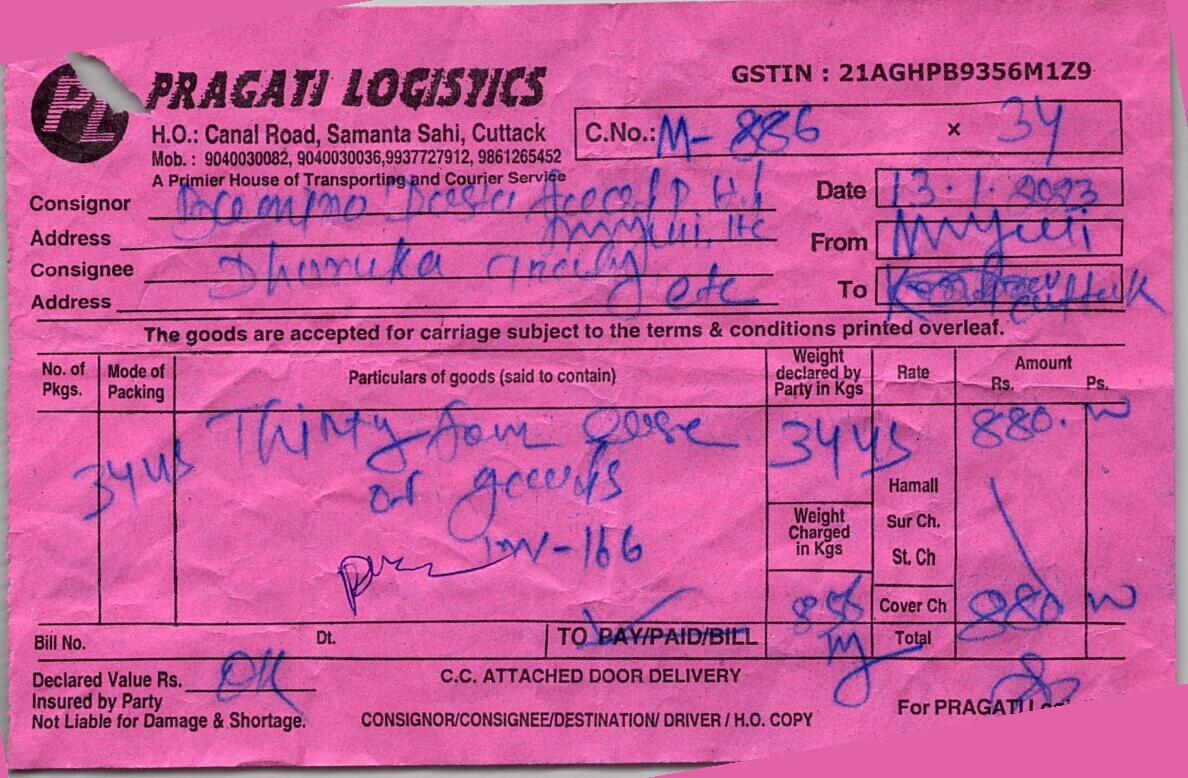 PL PRAGATI LOGISTICS
GSTIN : 21AGHPB9356M1Z9
H.O.: Canal Road, Samanta Sahi, Cuttack
C.No.: M- 886 × 34
Mob. : 9040030082, 9040030036,9937727912, 9861265452
A Primier House of Transporting and Courier Service
Consignor
Date 13.1.2023
Address
From
Consignee Dharuka
Address etc
To Cuttack
The goods are accepted for carriage subject to the terms & conditions printed overleaf.
No. of Pkgs. Mode of Packing Particulars of goods (said to contain) Weight declared by Party in Kgs Rate Amount Rs. Ps.
Thirty four 880.
34 34
of goods
Hamall
Weight Charged in Kgs
Sur Ch.
St. Ch
-166
Cover Ch 880
Bill No. Dt. TO PAY/PAID/BILL Total
Declared Value Rs. OK
C.C. ATTACHED DOOR DELIVERY
Insured by Party
For PRAGATI
Not Liable for Damage & Shortage.
CONSIGNOR/CONSIGNEE/DESTINATION/ DRIVER / H.O. COPY